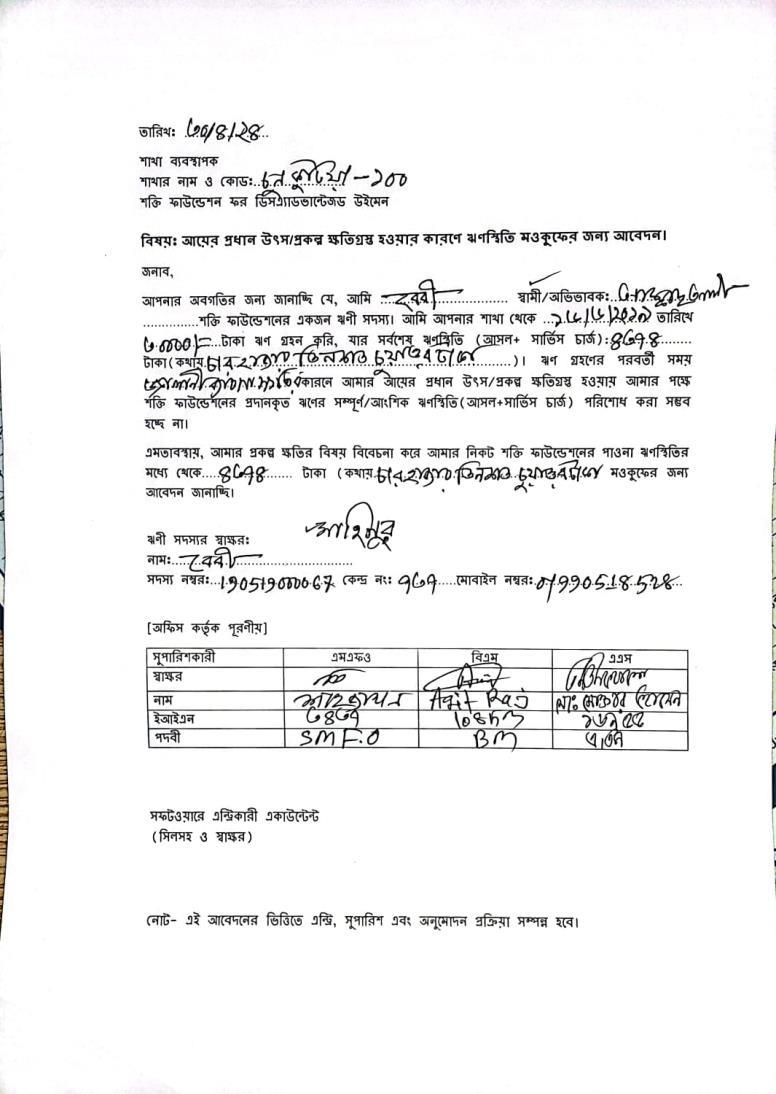 তারিখ: ৩০/৪/২৪
শাখা ব্যবস্থাপক
শাখার নাম ও কোড: চুনকুটিয়া - ১০০
শক্তি ফাউন্ডেশন ফর ডিসএ্যাডভান্টেজড উইমেন
বিষয়: আয়ের প্রধান উৎস/প্রকল্প ক্ষতিগ্রস্ত হওয়ার কারণে ঋণস্থিতি মওকুফের জন্য আবেদন।
জনাব,
আপনার অবগতির জন্য জানাচ্ছি যে, আমি স্বামী/অভিভাবক:
শক্তি ফাউন্ডেশনের একজন ঋণী সদস্য। আমি আপনার শাখা থেকে তারিখে
টাকা ঋণ গ্রহন করি, যার সর্বশেষ ঋণস্থিতি (আসল+ সার্ভিস চার্জ): ৪৩৭৪
টাকা(কথায় চার হাজার তিনশত চুয়াত্তর টাকা)। ঋণ গ্রহণের পরবর্তী সময়
কারনে আমার আয়ের প্রধান উৎস/প্রকল্প ক্ষতিগ্রস্ত হওয়ায় আমার পক্ষে
শক্তি ফাউন্ডেশনের প্রদানকৃত ঋণের সম্পূর্ণ/আংশিক ঋণস্থিতি(আসল+সার্ভিস চার্জ) পরিশোধ করা সম্ভব
হচ্ছে না।
এমতাবস্থায়, আমার প্রকল্প ক্ষতির বিষয় বিবেচনা করে আমার নিকট শক্তি ফাউন্ডেশনের পাওনা ঋণস্থিতির
মধ্যে থেকে ৪৩৭৪ টাকা (কথায় চার হাজার তিনশত চুয়াত্তর টাকা মওকুফের জন্য
আবেদন জানাচ্ছি।
ঋণী সদস্যর স্বাক্ষর:
নাম:
সদস্য নম্বর: 19051900067 কেন্দ্র নং: ৭৩৭ মোবাইল নম্বর: 01990518528
[অফিস কর্তৃক পূরণীয়]
সুপারিশকারী এমএফও বিএম এএস
স্বাক্ষর
নাম Ajit Raj মোঃ মোক্তার হোসেন
ইআইএন ৩৪৩৭
পদবী SMF.O BM
সফটওয়ারে এন্ট্রিকারী একাউন্টেন্ট
(সিলসহ ও স্বাক্ষর)
নোট- এই আবেদনের ভিত্তিতে এন্ট্রি, সুপারিশ এবং অনুমোদন প্রক্রিয়া সম্পন্ন হবে।